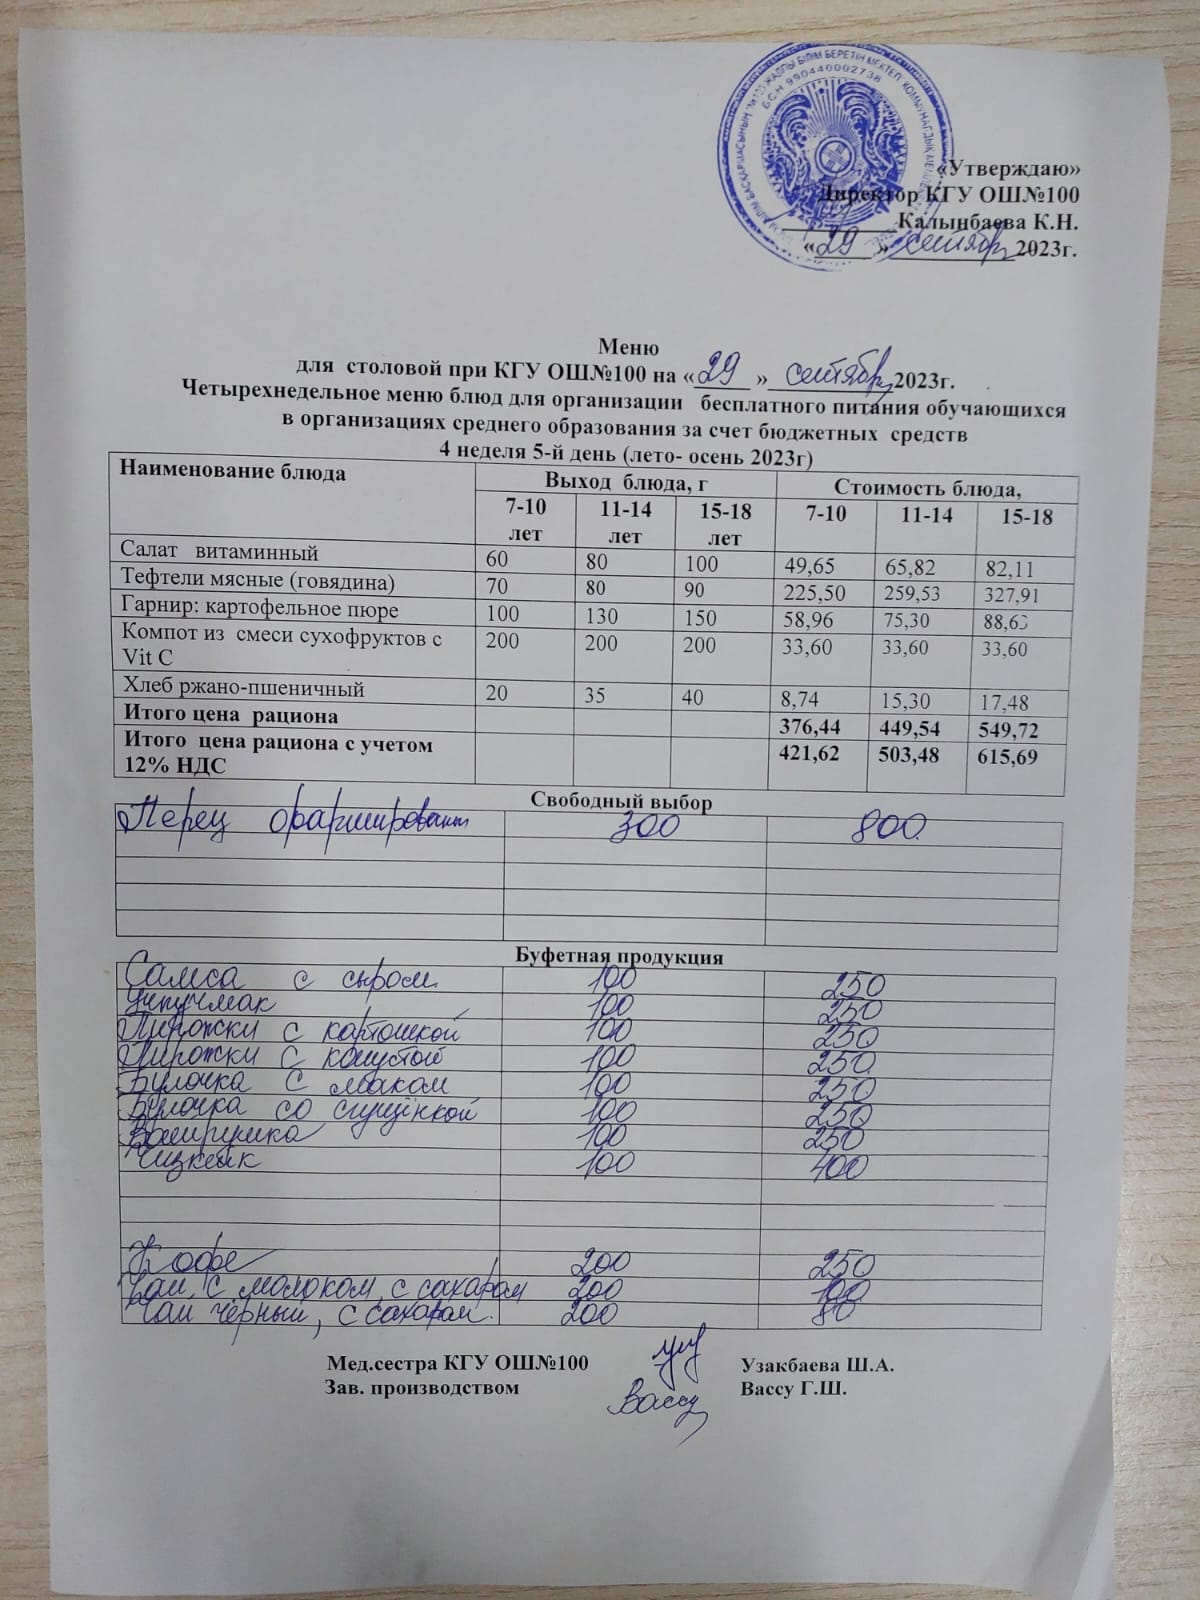 ЖАЛПЫ БІЛІМ БЕРЕТІН МЕКТЕП КОММУНАЛДЫҚ
БСН 990440002738
«Утверждаю»
Директор КГУ ОШ№100
Калынбаева К.Н.
«29» сентябр 2023г.
Меню
для столовой при КГУ ОШ№100 на «29 » сентябр 2023г.
Четырехнедельное меню блюд для организации бесплатного питания обучающихся
в организациях среднего образования за счет бюджетных средств
4 неделя 5-й день (лето- осень 2023г)
Наименование блюда Выход блюда, г Стоимость блюда,
7-10 лет 11-14 лет 15-18 лет 7-10 11-14 15-18
Салат витаминный 60 80 100 49,65 65,82 82,11
Тефтели мясные (говядина) 70 80 90 225,50 259,53 327,91
Гарнир: картофельное пюре 100 130 150 58,96 75,30
Компот из смеси сухофруктов с 200 200 200 33,60 33,60 33,60
Vit C
Хлеб ржано-пшеничный 20 35 40 8,74 15,30 17,48
Итого цена рациона 376,44 449,54 549,72
Итого цена рациона с учетом 421,62 503,48 615,69
12% НДС
Свободный выбор
Перец фаршированн 300 800
Буфетная продукция
Самса с сыром 100 250
Учпучмак 100 250
Пирожки с картошкой 100 250
Пирожки с капустой 100 250
Булочка с маком 100 250
Булочка со сгущёнкой 100 250
Ватрушка 100 250
Чизкейк 100 400
Кофе 200 250
Чай с молоком, с сахаром 200 100
Чай чёрный, с сахаром. 200 80
Мед.сестра КГУ ОШ№100 Узакбаева Ш.А.
Зав. производством Вассу Вассу Г.Ш.